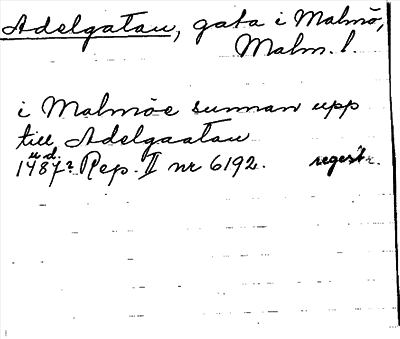 Adelgatan, gata i Malmö,
Malm. l.
i Malmöe sunnan upp
till Adelgaatan
u. d.
1487? Rep. II nr 6192. regestr.